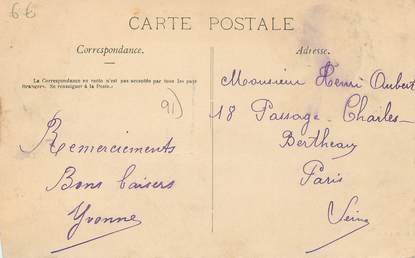 6€
CARTE POSTALE
Correspondance.
La Correspondance au recto n'est pas acceptée par tous les pays
étrangers. Se renseigner à la Poste.
91)
Remerciements
Bons baisers
Yvonne
Adresse.
Monsieur Henri Aubert
18 Passage Charles-
Bertheau
Paris
Seine